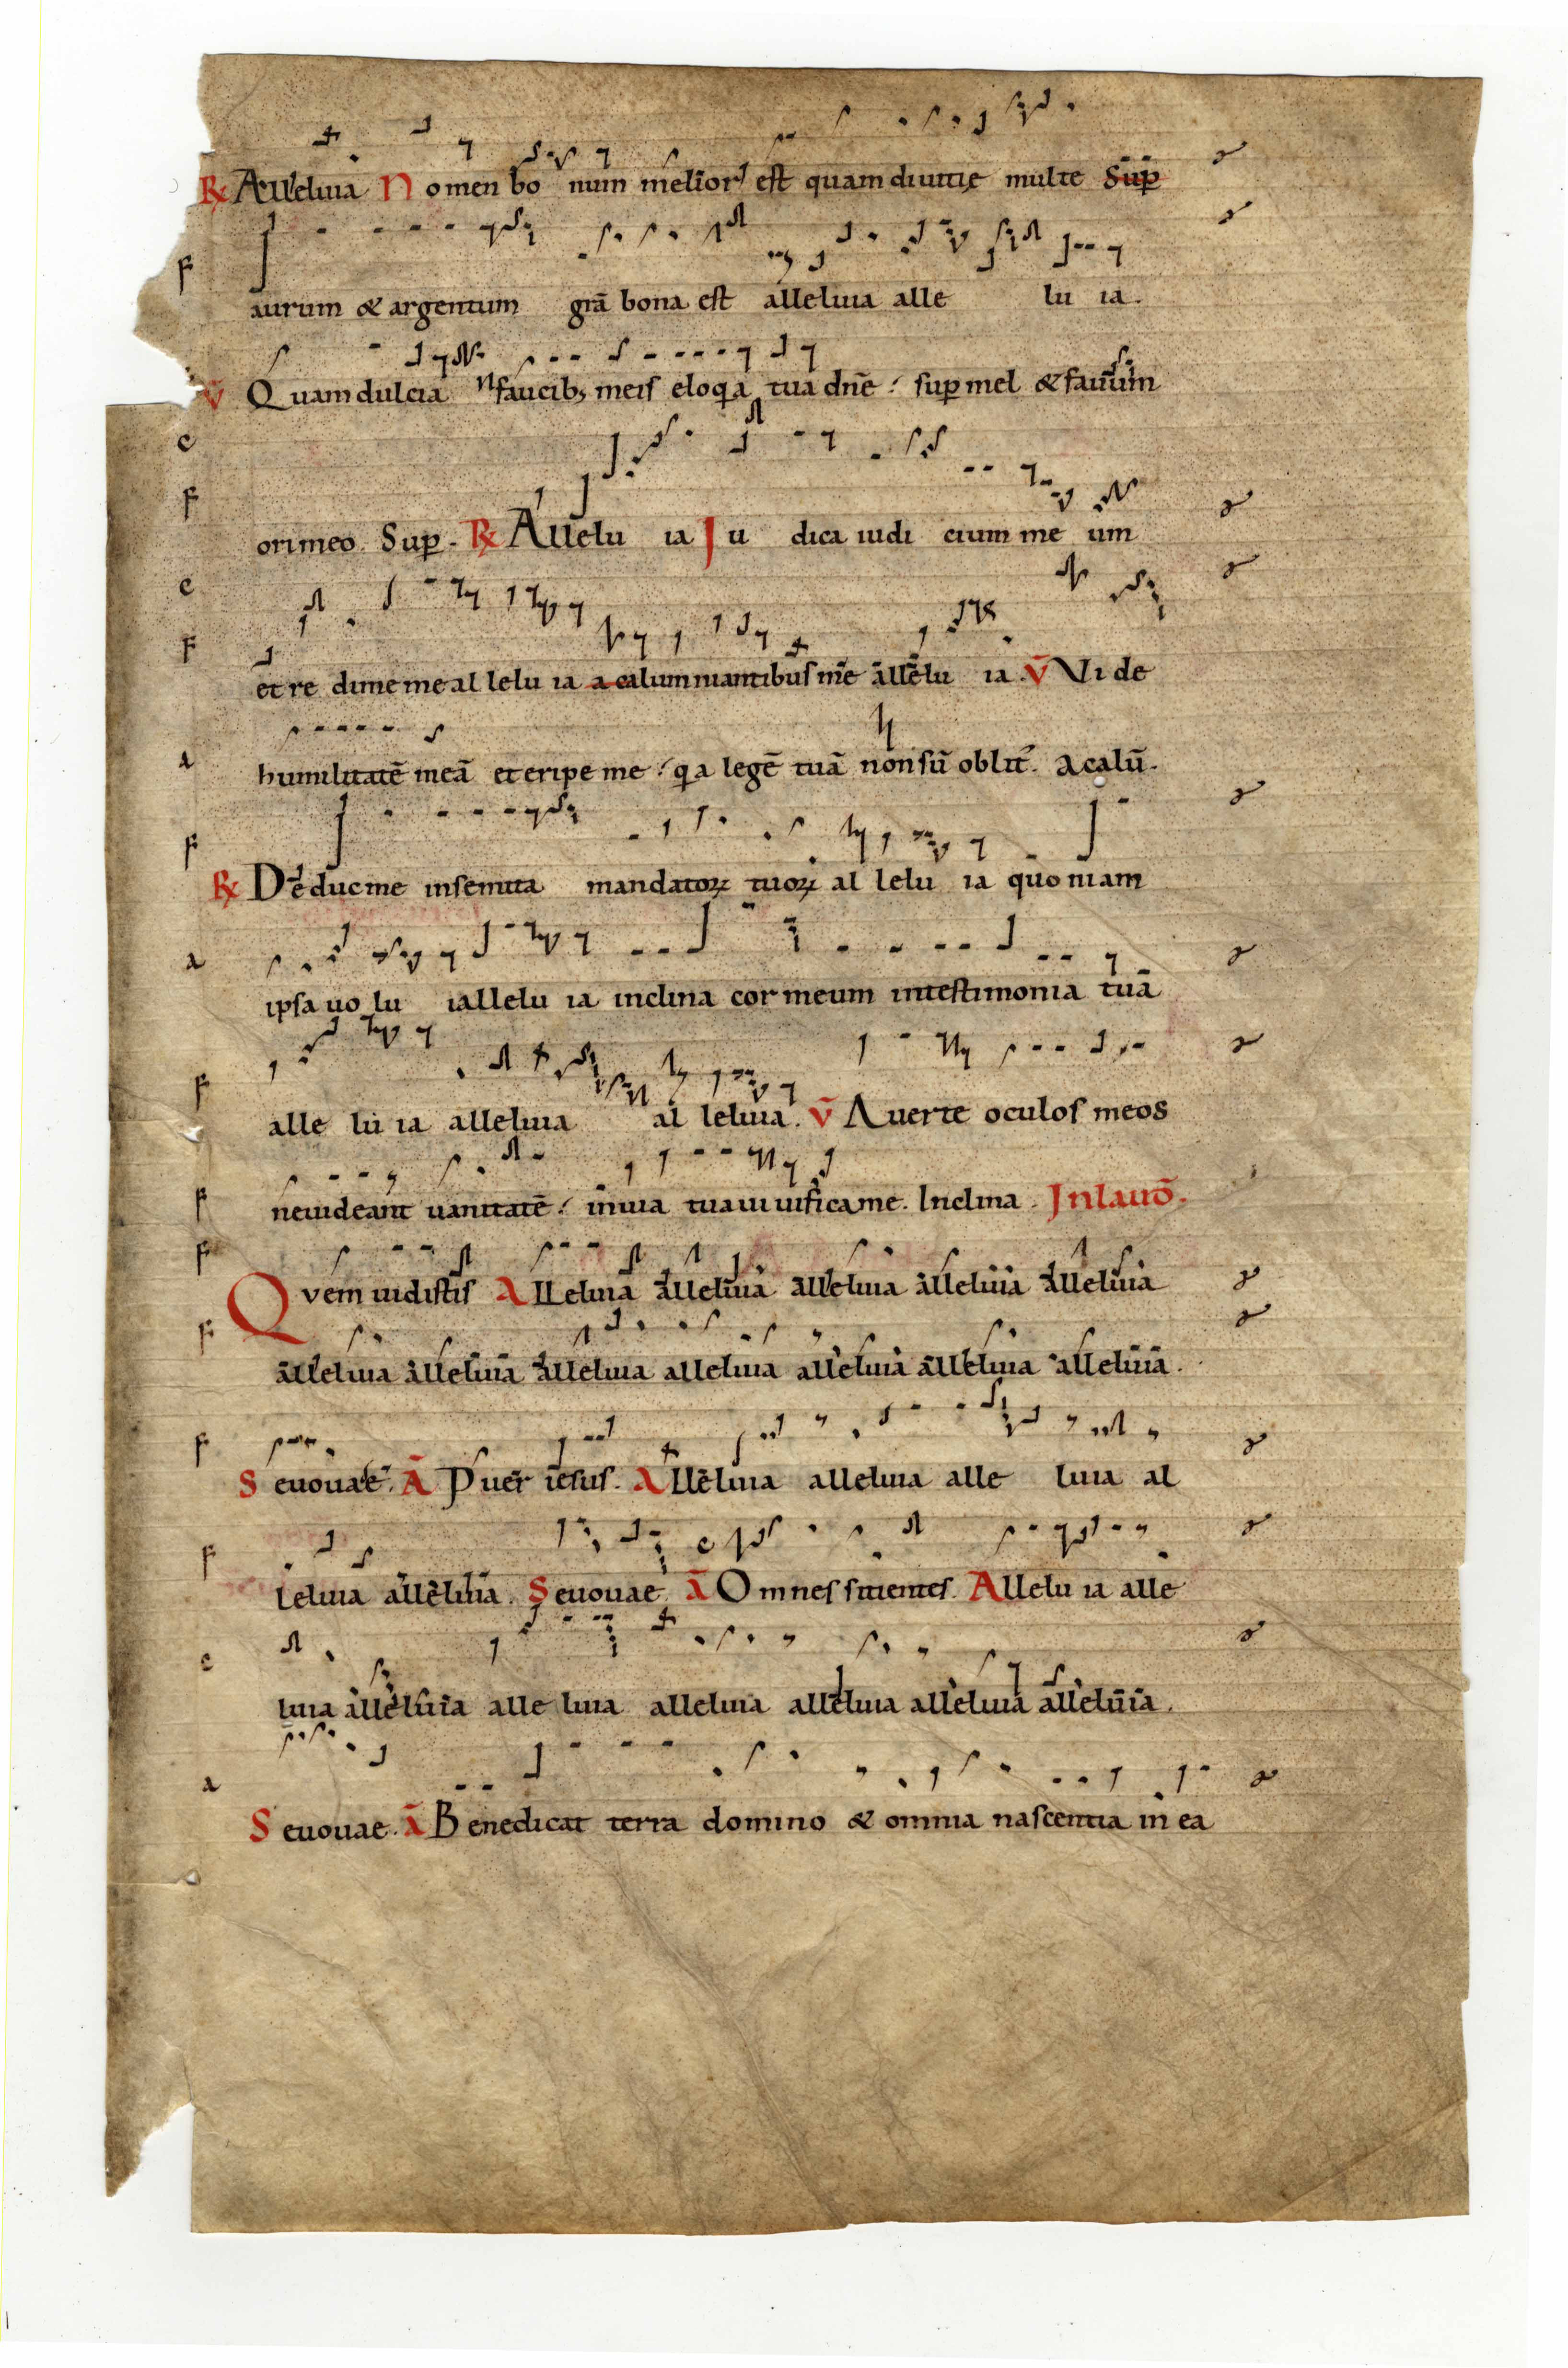 ℟ Alleluia Nomen bo num melior est quam diuitię multe Sup̱
aurum & argentum grā bona est alleluia alle lu ia.
v̄ Quam dulcia n faucib; meis eloqa tua dn̄e : sup̱ mel & fauum
ori meo. Sup̱. ℟ Allelu ia Ju dica iudi cium me um
et re dime me al lelu ia a calumniantibus me allelu ia. v̄ Vi de
humilitatē meā et eripe me : qa legē tuā non sū oblit'. A calū.
℟ Deduc me in semita mandatoꝝ tuoꝝ al lelu ia quo niam
ipsa uo lu iallelu ia inclina cor meum in testimonia tua
alle lu ia alleluia al leluia. v̄ Auerte oculos meos
ne uideant uanitatē : in uia tua ui uifica me. Inclina. Jn lauō.
Quem uidistis Alleluia alleluia alleluia alleluia alleluia
alleluia alleluia alleluia alleluia alleluia alleluia alleluia.
Seuouae. Ā Puer iesus. Alleluia alleluia alle luia al
leluia alleluia. Seuouae. Ā Omnes sitientes. Allelu ia alle
luia alleluia alle luia alleluia alleluia alleluia alleluia.
Seuouae. Ā Benedicat terra domino & omnia nascentia in ea